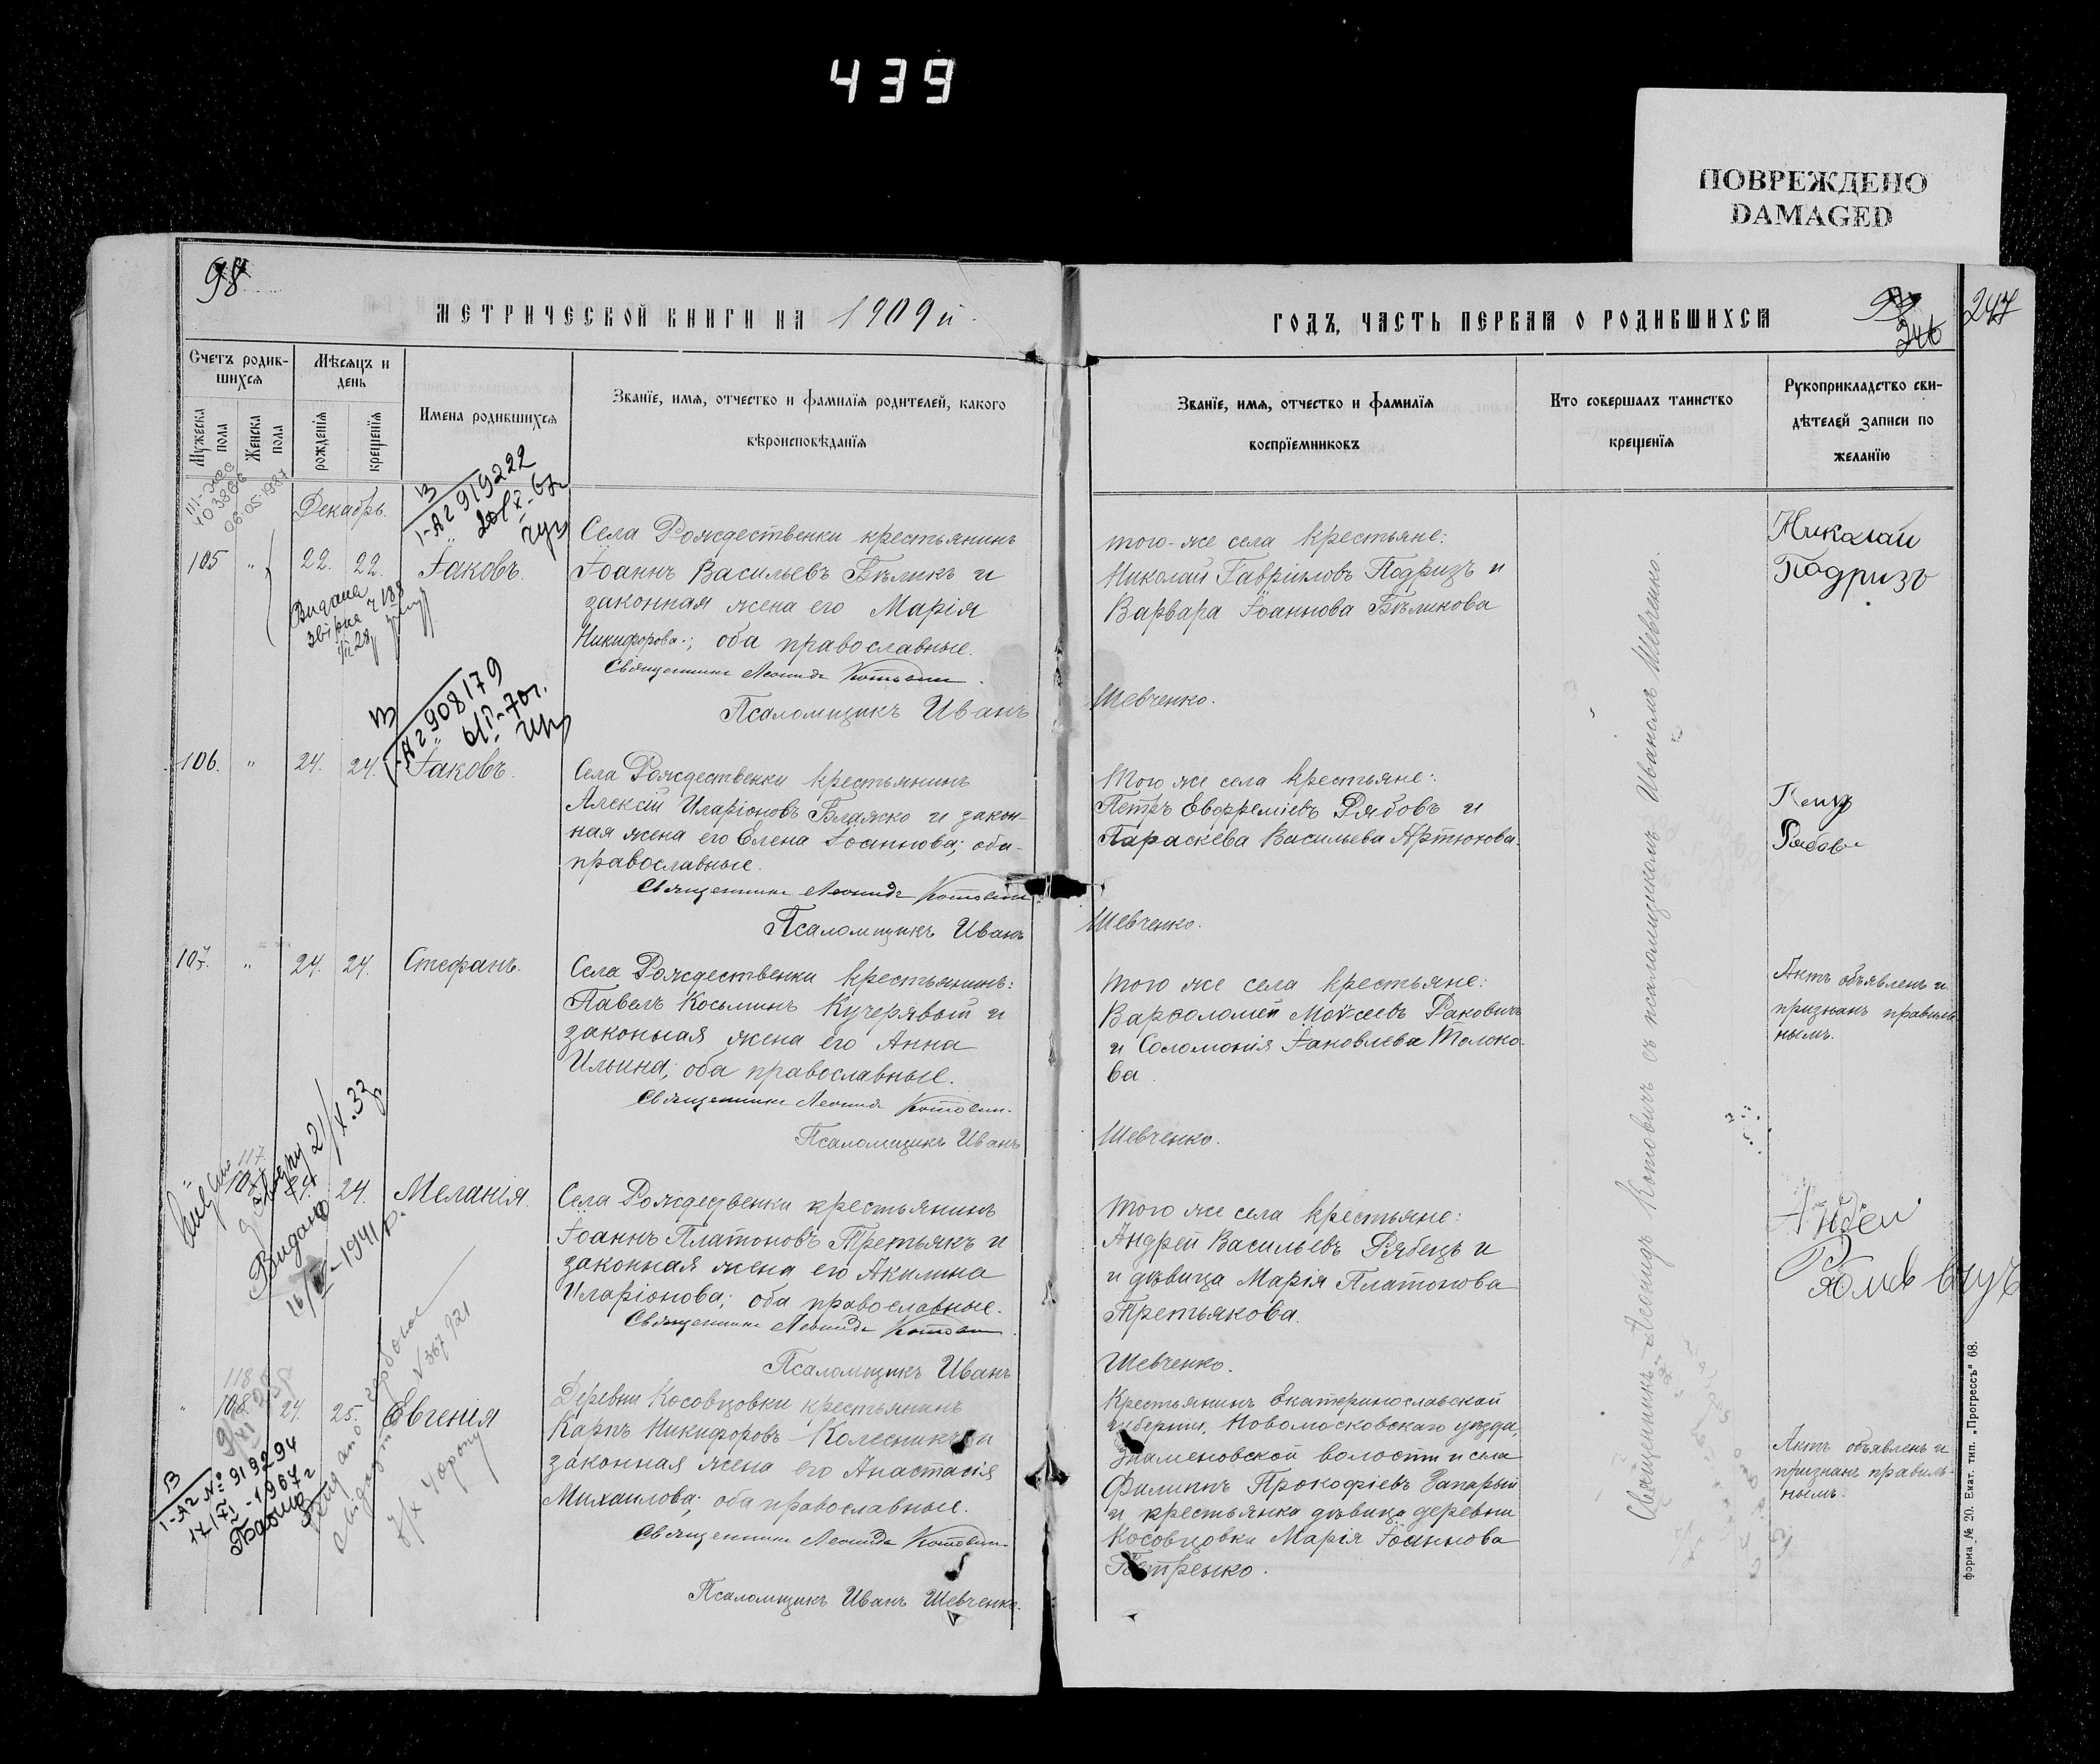 439
ПОВРЕЖДЕНО
DAMAGED
98
МЕТРИЧЕСКОЙ КНИГИ НА 1909й
Счетъ родив-
шихся
Мѣсяцъ и
день
Мужеска
пола
Женска
пола
рожденія
крещенія
Имена родившихся
Званіе, имя, отчество и фамилія родителей, какого
вѣроисповѣданія
06.05.1987
Декабрь.
1-АГ 919222
105 " 22. 22. Іаковъ.
Села Рождественки крестьянинъ
Іоаннъ Васильевъ Бѣликъ и
законная жена его Марія
Никифорова; оба православные.
Священникъ Леонидъ Котович
Псаломщикъ Иванъ
Видана
1-АГ 908179
106. " 24. 24. Іаковъ.
Села Рождественки крестьянинъ
Алексій Иларіоновъ Блажко и закон-
ная жена его Елена Іоаннова; оба
православные.
Священникъ Леонидъ Котович
Псаломщикъ Иванъ
107. " 24. 24. Стефанъ.
Села Рождественки крестьянинъ:
Павелъ Косьминъ Кучерявый и
законная жена его Анна
Ильина; оба православные.
Священникъ Леонидъ Котович.
Псаломщикъ Иванъ
117.
" 107. 24. 24. Меланія.
Видано
16/III-1941 р.
Села Рождественки крестьянинъ
Іоаннъ Платоновъ Третьякъ и
законная жена его Акилина
Иларіонова; оба православные.
Священникъ Леонидъ Котович
Псаломщикъ Иванъ
118
" 108. 24. 25. Евгенія
N 367921
1-АГ № 919294
17/VI-1967г
Деревни Косовцовки крестьянинъ
Карпъ Никифоровъ Колесникъ и
законная жена его Анастасія
Михаилова; оба православные.
Священникъ Леонидъ Котович
Псаломщикъ Иванъ Шевченко.
ГОДЪ, ЧАСТЬ ПЕРВАЯ О РОДИВШИХСЯ
246
247
Званіе, имя, отчество и фамилія
воспріемниковъ
Кто совершалъ таинство
крещенія
Рукоприкладство сви-
дѣтелей записи по
желанію
того-же села крестьяне:
Николай Гавріиловъ Подризъ и
Варвара Іоаннова Бѣликова
Шевченко.
Николай
Подризъ
Того же села крестьяне:
Петръ Евфреміевъ Рябовъ и
Параскева Васильева Артюхова.
Шевченко.
Рябовъ
того же села крестьяне:
Варфоломей Моѵсеевъ Раковичъ
и Соломонія Іаковлева Толоко-
ва.
Шевченко.
Актъ объявленъ и
признанъ правиль-
нымъ.
того же села крестьяне:
Андрей Васильевъ Рябецъ и
и дѣвица Марія Платонова
Третьякова.
Шевченко.
Крестьянинъ Екатеринославской
губерніи, Новомосковскаго уѣзда,
Знаменовской волости и села
Филиппъ Прокофіевъ Запарый
и крестьянка дѣвица деревни
Косовцовки Марія Іоаннова
Петренко.
Актъ объявленъ и
признанъ правиль-
нымъ.
Священникъ Леонидъ Котовичъ съ псаломщикомъ Иваномъ Шевченко.
Форма № 20. Екат. тип. „Прогрессъ" 68.